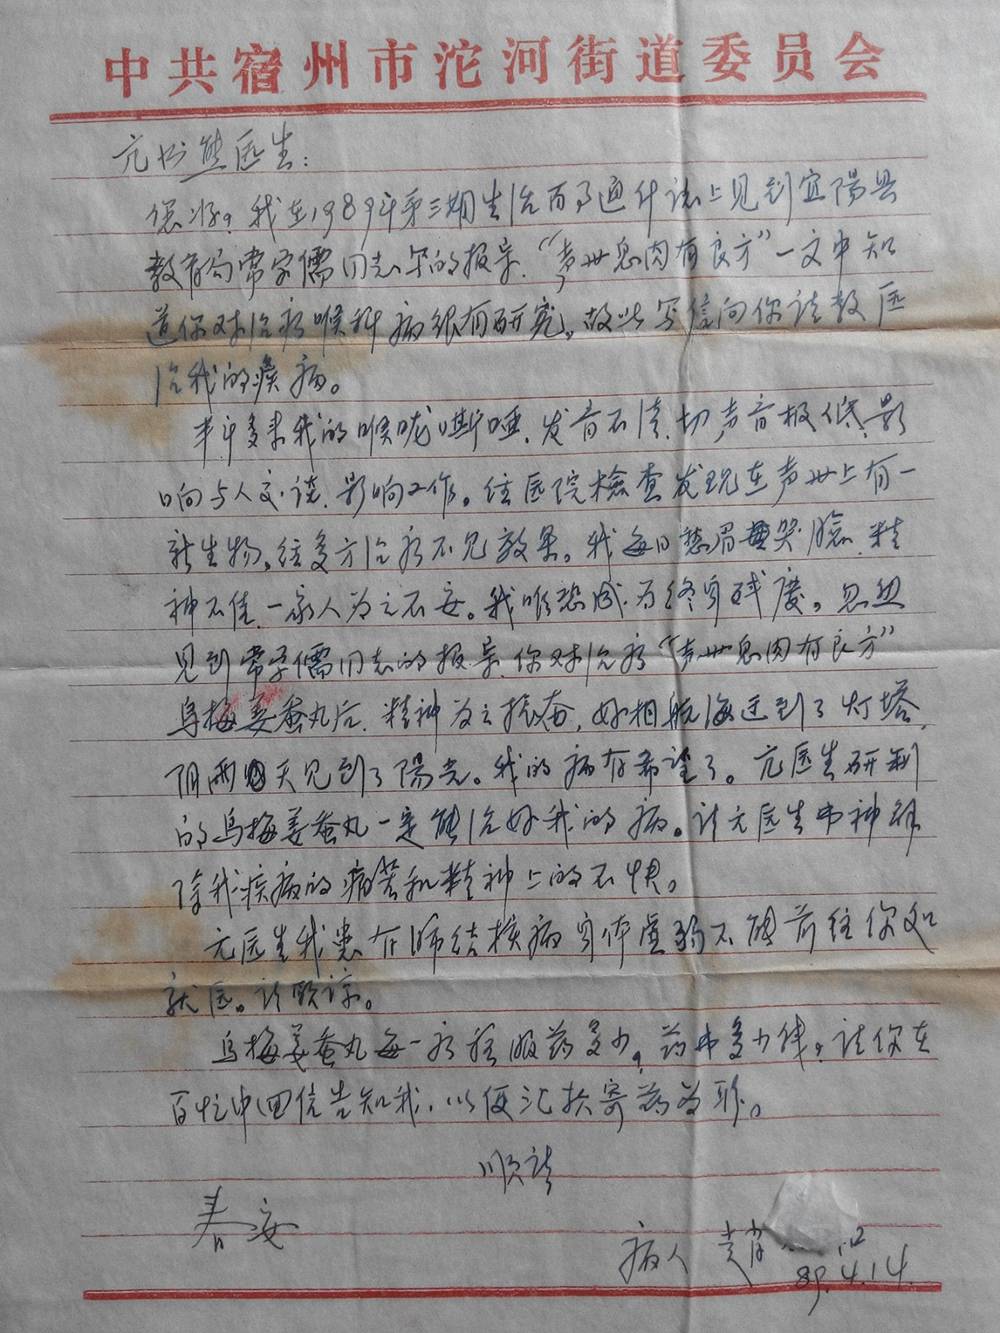 中共宿州市沱河街道委员会
亢 熊医生：
您好，我在1989年第三期生活百事通什志上见到宜阳县
教育局常学儒同志写的报导，“声带息肉有良方”一文中知
道你对治疗喉科病很有研究。故此写信向你请教医
治我的疾病。
半年多来我的喉咙嘶哑，发音不清，切声音极低，影
响与人交谈，影响工作。经医院检查发现在声带上有一
新生物，经多方治疗不见效果。我每日愁眉哭脸，精
神不佳，一家人为之不安。我唯恐成为终身残废。忽然
见到常学儒同志的报导，你对治疗“声带息肉有良方”
乌梅姜蚕丸后，精神为之振奋，好相航海迂到了灯塔，
阴雨天见到了陽光。我的病有希望了。亢医生研制
的乌梅姜蚕丸一定能治好我的病。请亢医生费神解
除我疾病的痛苦和精神上的不快。
亢医生我患有肺结核病身体虚弱不能前往你处
就医。请原谅。
乌梅姜蚕丸每一疗程服药多少，药费多少钱，请你在
百忙中回信告知我，以便汇款寄药为盼。
顺请
春安
病人 赵
89.4.14.